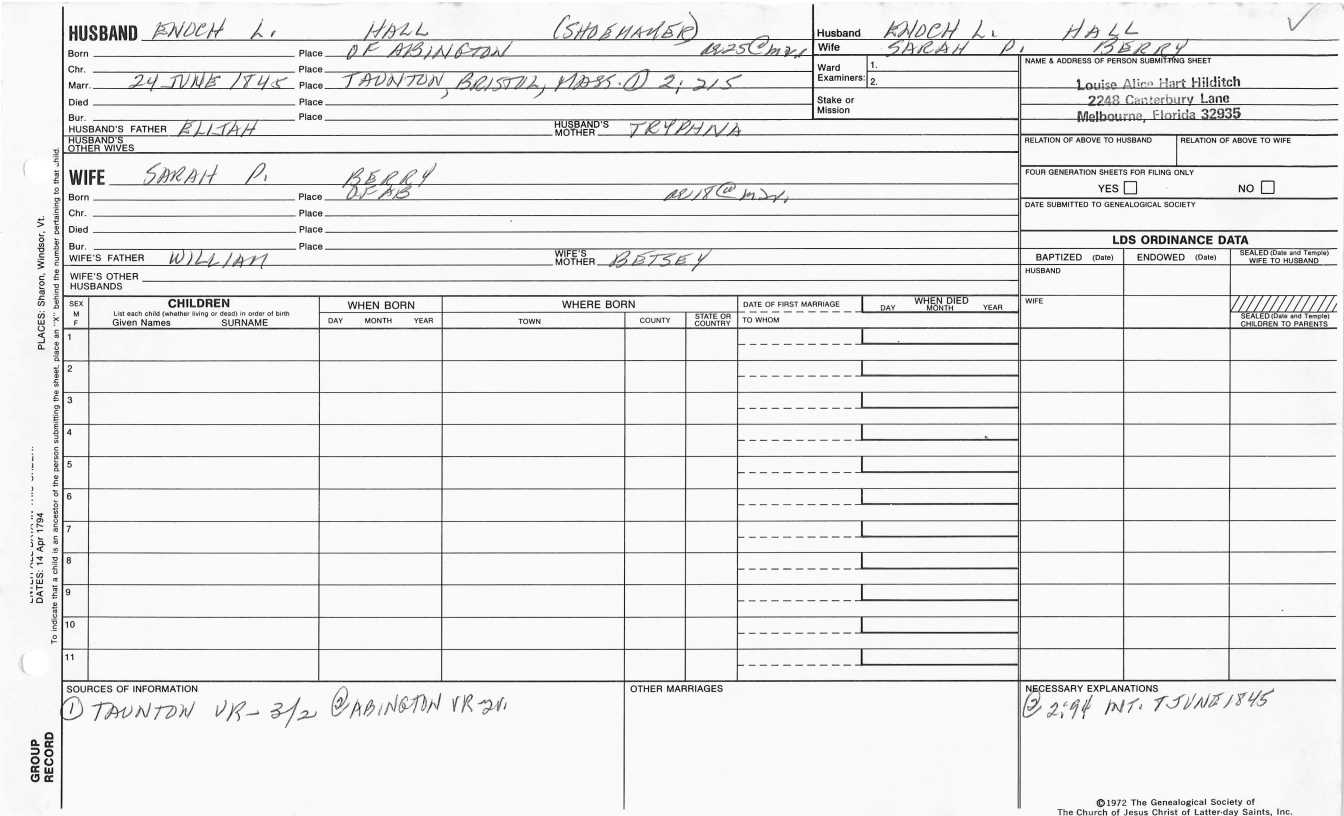 HUSBAND ENOCH L. HALL (SHOEMAKER)
Born Place OF ABINGTON
Chr. Place
Marr. 24 JUNE 1845 Place TAUNTON, BRISTOL, MASS. ① 2; 215
Died Place
Bur. Place
HUSBAND'S FATHER ELIJAH HUSBAND'S MOTHER TRYPHNA
HUSBAND'S OTHER WIVES
WIFE SARAH P. BERRY
Born Place OF AB
Chr. Place
Died Place
Bur. Place
WIFE'S FATHER WILLIAM WIFE'S MOTHER BETSEY
WIFE'S OTHER HUSBANDS
Husband ENOCH L. HALL
Wife SARAH P. BERRY
Ward Examiners: 1. 2.
Stake or Mission
NAME & ADDRESS OF PERSON SUBMITTING SHEET
Louise Alice Hart Hilditch
2248 Canterbury Lane
Melbourne, Florida 32935
RELATION OF ABOVE TO HUSBAND RELATION OF ABOVE TO WIFE
FOUR GENERATION SHEETS FOR FILING ONLY
YES NO
DATE SUBMITTED TO GENEALOGICAL SOCIETY
LDS ORDINANCE DATA
BAPTIZED (Date) ENDOWED (Date) SEALED (Date and Temple) WIFE TO HUSBAND
HUSBAND
WIFE
SEALED (Date and Temple) CHILDREN TO PARENTS
SEX M F
CHILDREN
List each child (whether living or dead) in order of birth
Given Names SURNAME
WHEN BORN
DAY MONTH YEAR
WHERE BORN
TOWN COUNTY STATE OR COUNTRY
DATE OF FIRST MARRIAGE
TO WHOM
WHEN DIED
DAY MONTH YEAR
1
2
3
4
5
6
7
8
9
10
11
SOURCES OF INFORMATION
① TAUNTON VR- 3/2 ② ABINGTON VR
OTHER MARRIAGES
NECESSARY EXPLANATIONS
② 2:94 INT. 7 JUNE 1845
PLACES: Sharon, Windsor, Vt.
DATES: 14 Apr 1794
To indicate that a child is an ancestor of the person submitting the sheet, place an "X" behind the number pertaining to that child.
GROUP RECORD
©1972 The Genealogical Society of
The Church of Jesus Christ of Latter-day Saints, Inc.